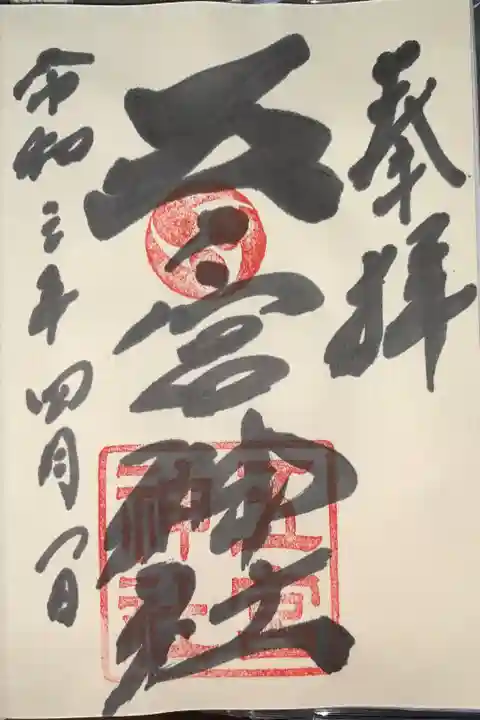 奉拝
五宮神社
令和三年四月一日
五宮
神社